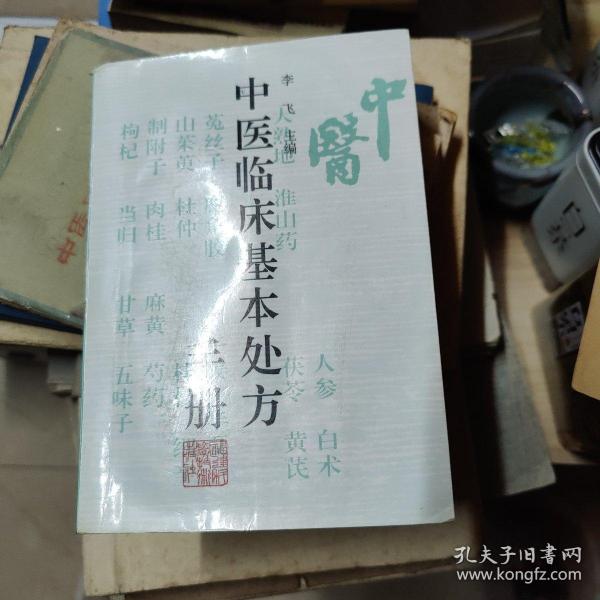 中醫
李飞 主编
中医临床基本处方
手册
人参 白术
茯苓 黄芪
淮山药
菟丝子
山茱萸 杜仲
制附子 肉桂 麻黄 芍药
枸杞 当归 甘草 五味子
孔夫子旧书网
www.kongfz.com